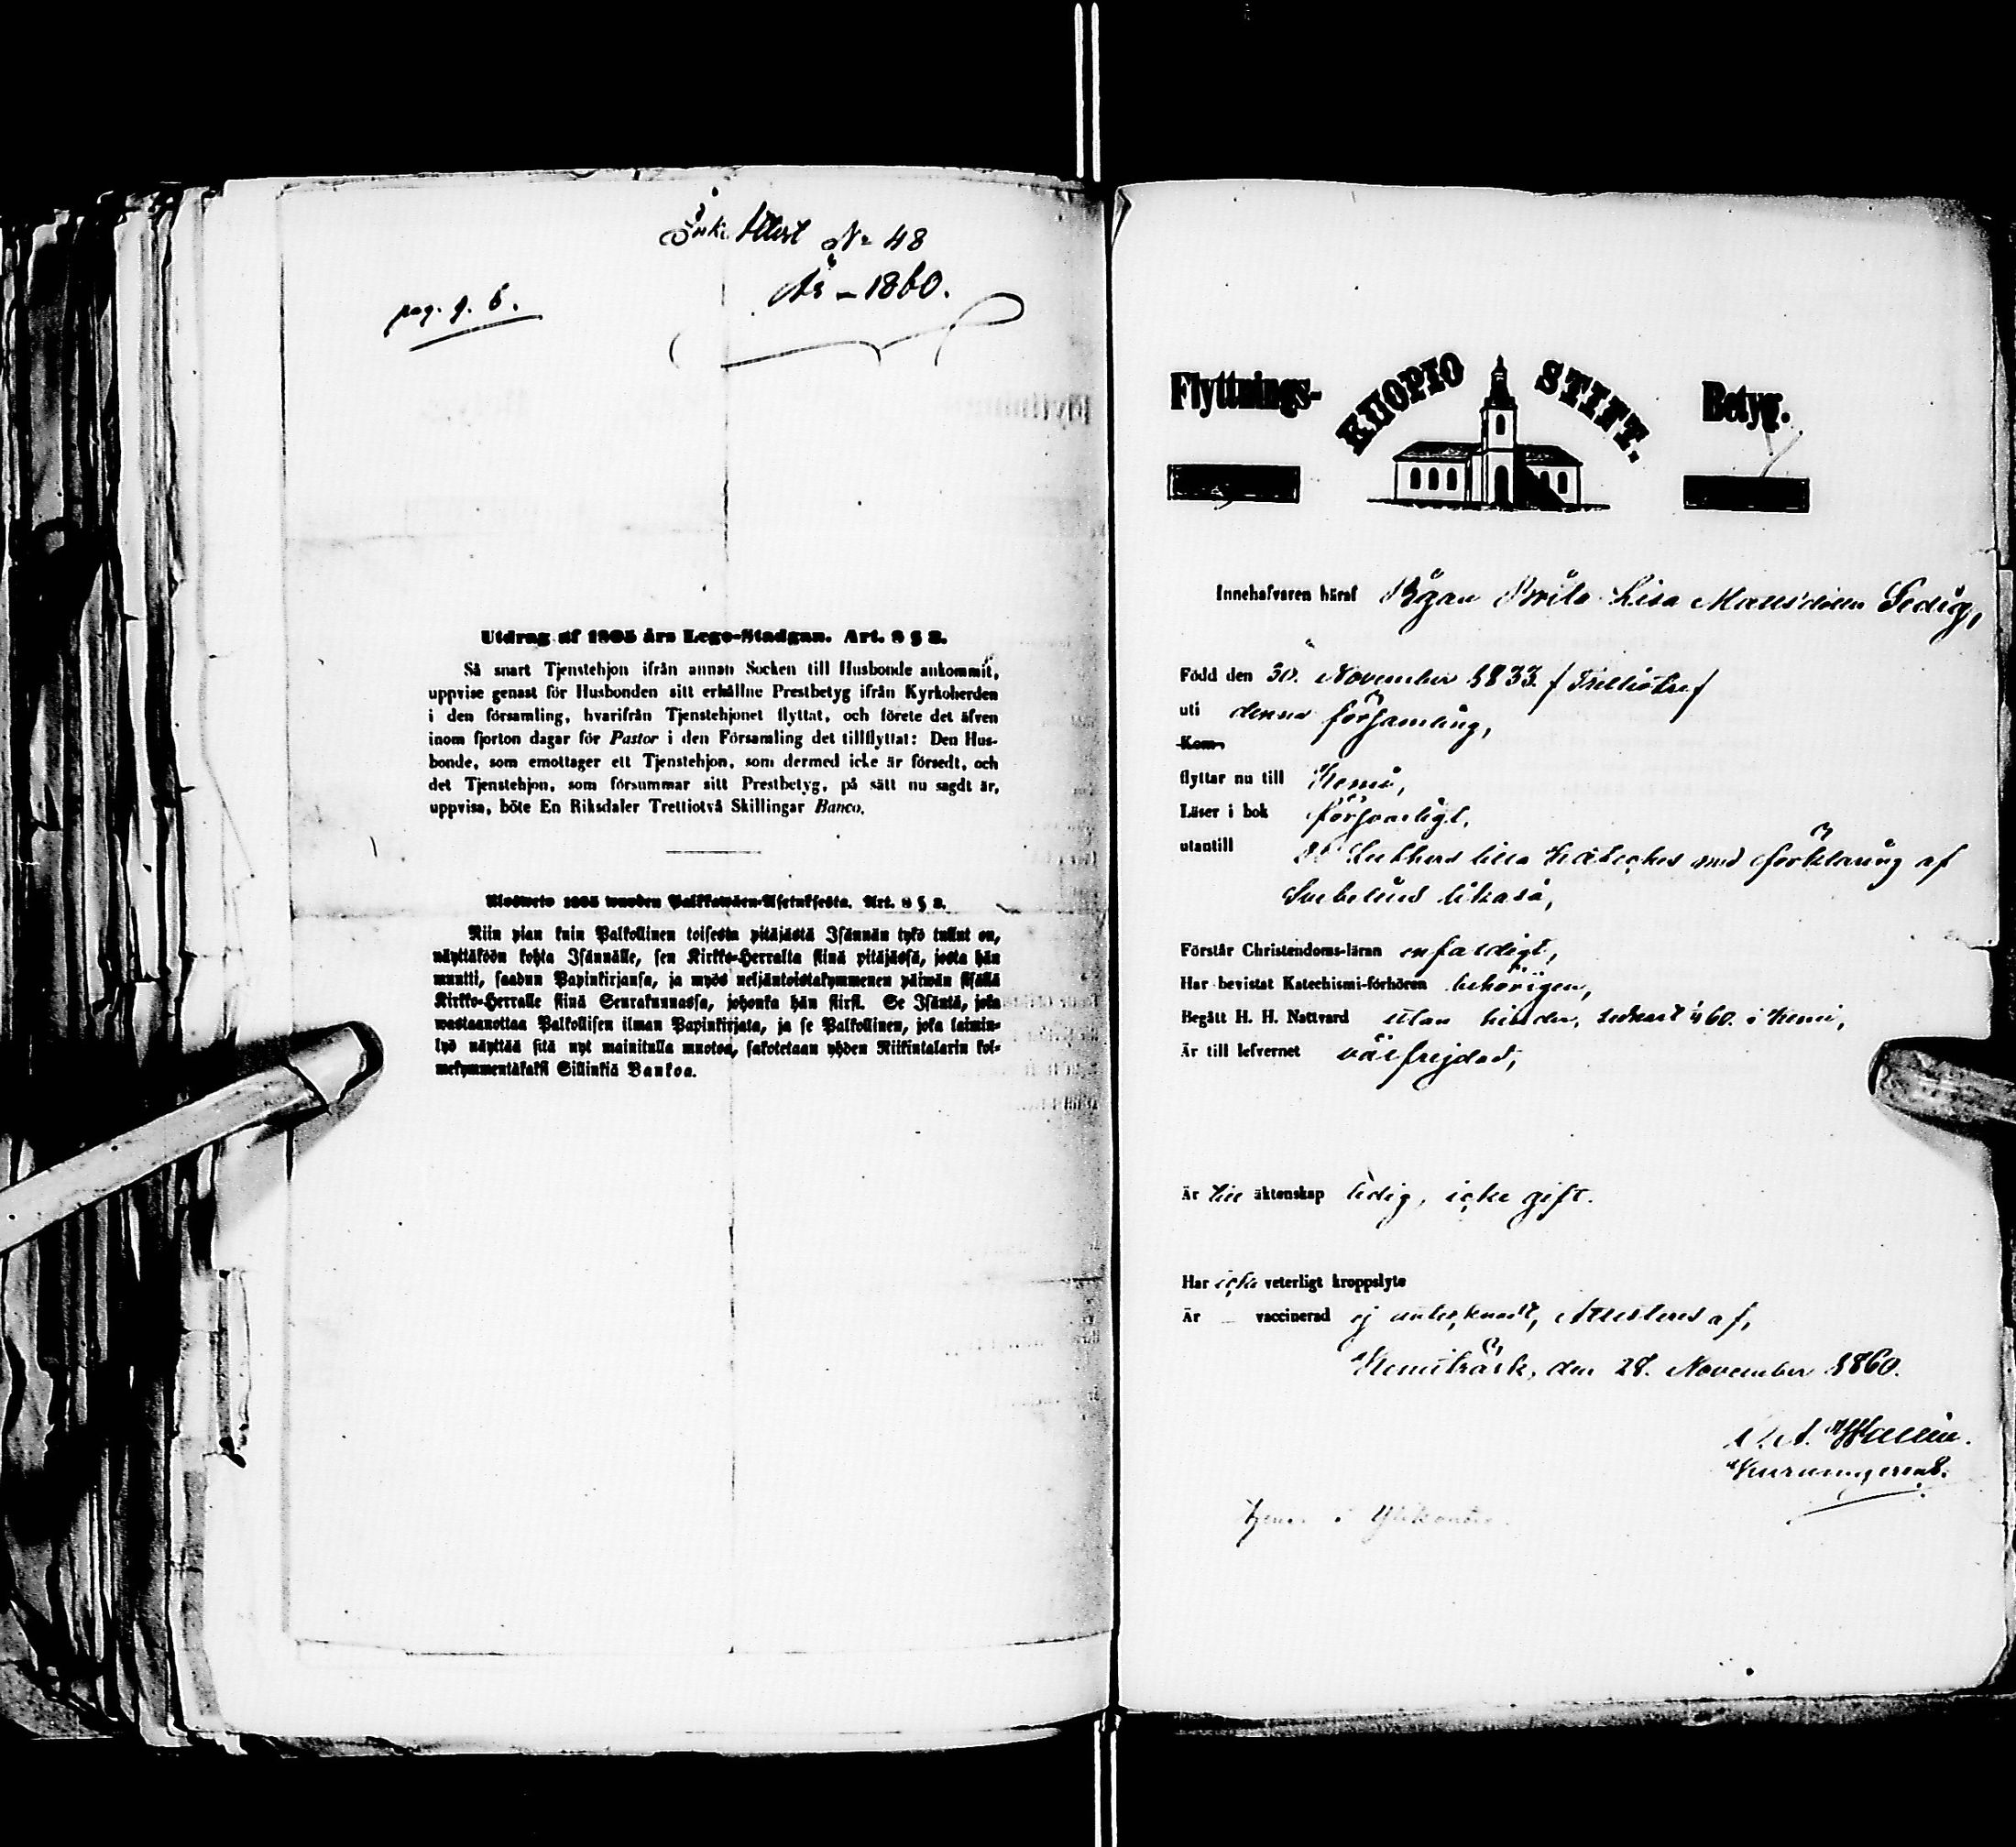 Ink. Attest No 48
År 1860.
pag. 9. 6.
Utdrag af 1805 års Lego-Stadgan. Art. 8 § 2.
Så snart Tjenstehjon ifrån annan Socken till Husbonde ankommit,
uppvise genast för Husbonden sitt erhållne Prestbetyg ifrån Kyrkoherden
i den församling, hvarifrån Tjenstehjonet flyttat, och förete det äfven
inom fjorton dagar för Pastor i den Församling det tillflyttat: Den Hus-
bonde, som emottager ett Tjenstehjon, som dermed icke är försedt, och
det Tjenstehjon, som försummar sitt Prestbetyg, på sätt nu sagdt är,
uppvisa, böte En Riksdaler Trettiotvå Skillingar Banco.
Ulosweto 1805 wuoden Palkkawäen-Asetuksesta. Art. 8 § 2.
Niin pian kuin Palkollinen toisesta pitäjästä Isännän tykö tullut on,
näyttäköön kohta Isännälle, sen Kirkko-Herralta siinä pitäjässä, josta hän
muutti, saadun Papinkirjansa, ja myös neljäntoistakymmenen päiwän sisällä
Kirkko-Herralle siinä Seurakunnassa, johonka hän siirsi. Se Isäntä, joka
wastaanottaa Palkollisen ilman Papinkirjata, ja se Palkollinen, joka laimin-
lyö näyttää sitä nyt mainitulla muotoa, sakotetaan yhden Riikintalarin kol-
mekymmentäkaksi Sillinkiä Bankoa.
Flyttnings- KUOPIO STIFT. Betyg.
Innehafvaren häraf Pigan Brita Lisa Matsdotter
Född den 30. November 1833. / Trettiotre /
uti denna församling,
Kom
flyttar nu till Kemi,
Läser i bok försvarligt,
utantill Lutheri lilla Kateches med förklaring af
Svebelius likaså,
Förstår Christendoms-läran enfaldigt,
Har bevistat Katechismi-förhören behörigen,
Begått H. H. Nattvard utan hinder, sednast 60. i Kemi,
Är till lefvernet välfrejdad,
Är till äktenskap ledig, icke gift.
Har icke veterligt kroppslyte
Är vaccinerad ej antecknadt, Attesteras af,
Kemiträsk, den 28. November 1860.